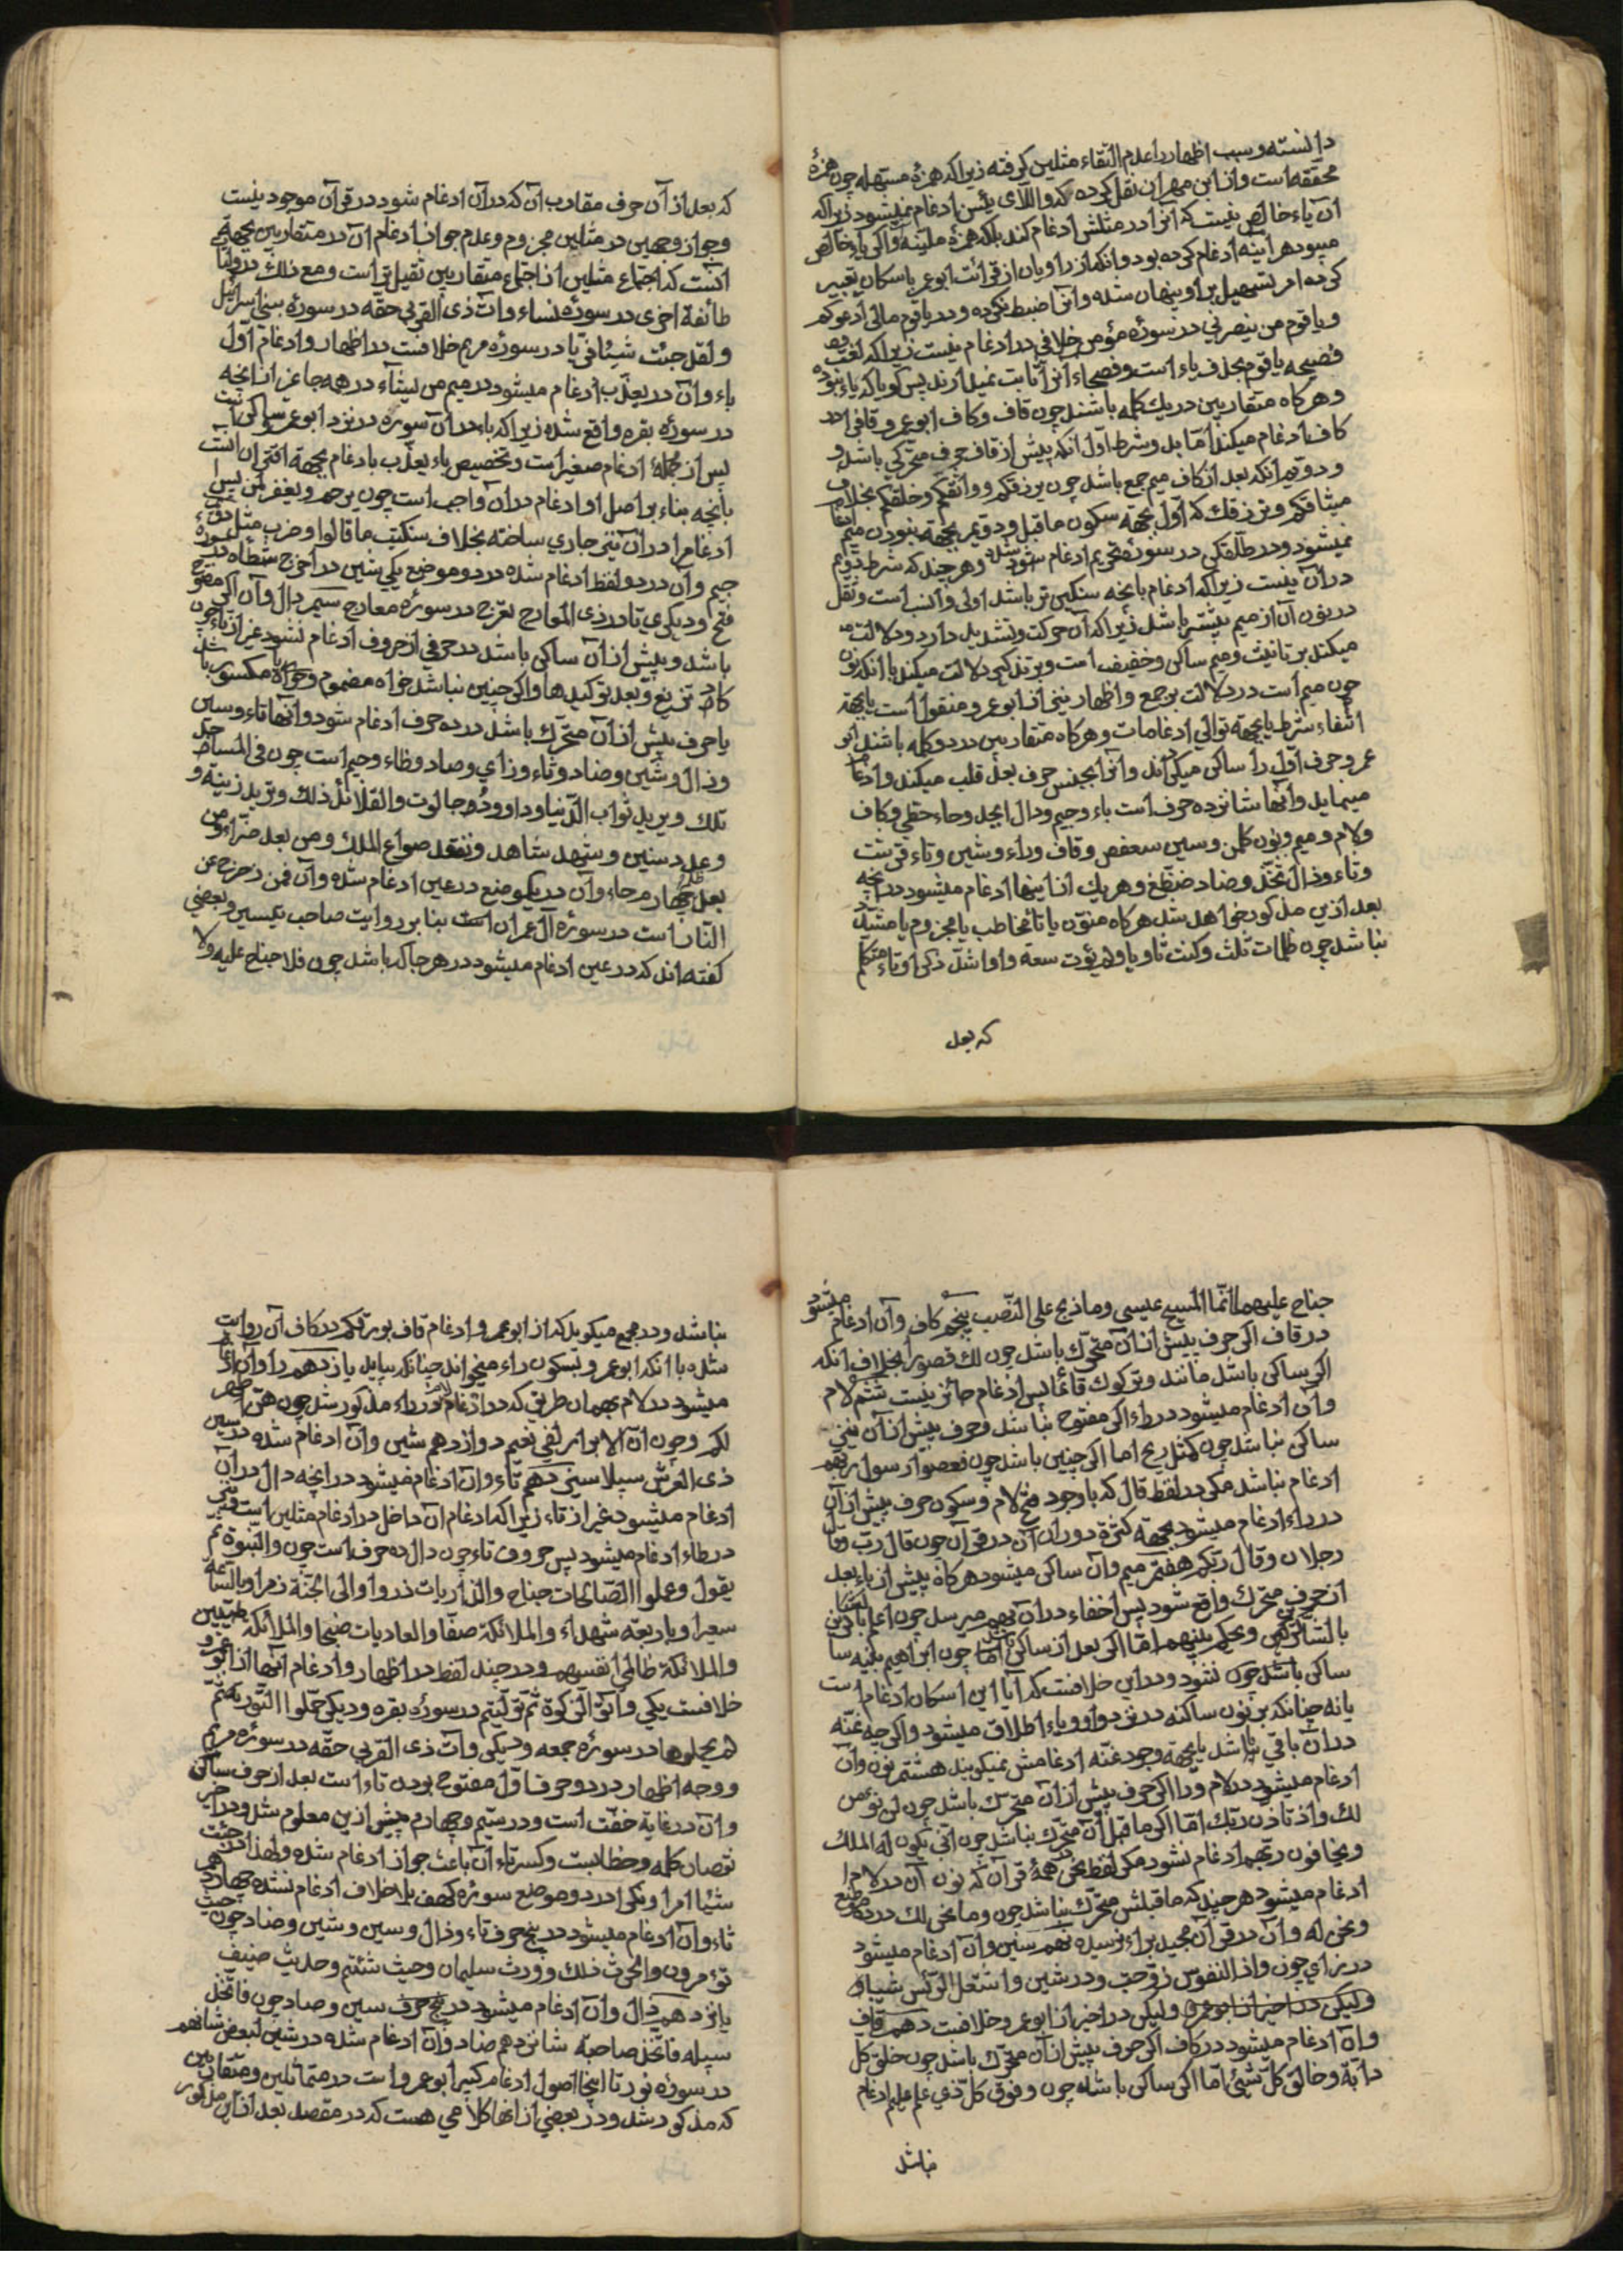 دانسته و سبب اظهار را عدم التقاء مثلین کرفته زیرا که همزهٔ مسهله چون همزهٔ
محققه است و از ابن مهران نقل کرده که واللآی یئسن ادغام نمیشود زیرا که
آن یاء خالص نیست که آنرا در مثلش ادغام کند بلکه همزه ملینه و اکر یاء خالص
میبود هر آینه ادغام کرده بود و آنکه از راویان از قرائت ابو عمر باسکان تعبیر
کرده امر تسهیل براو پنهان شده و آنرا ضبط نکرده و در یا قوم مالی ادعوکم
و یا قوم من ینصرنی در سورهٔ مؤمن خلافی در ادغام نیست زیرا که لغت
فصیحه یا قوم بحذف یاء است و فصحاء آنرا ثابت نمیدارند پس کویا که یاء نبوده
و هرکاه متقاربین در یک کلمه باشند چون قاف و کاف ابو عمرو قاف را در
کاف ادغام میکند اما بدو شرط اول آنکه پیش از قاف حرف متحرکی باشد و
دویم آنکه بعد از کاف میم جمع باشد چون یرزقکم و واثقکم و خلقکم بخلاف
میثاقکم و نرزقک که اول بجهة سکون ماقبل و دویم بجهة نبودن میم ادغام
نمیشود و در طلقکن در سورهٔ تحریم ادغام شده و هر چند که شرط دویم
در آن نیست زیرا که ادغام بآنچه سنکین تر باشد اولی و انسب است و ثقل
در نون آن از میم بیشتر باشد زیرا که آن حرکت و تشدید دارد و دلالت
میکند بر تانیث و میم ساکن و خفیف است و بر تذکیر دلالت میکند با آنکه نون
چون میم است در دلالت بر جمع و اظهار نیز از ابو عمرو منقول است یا بجهة
انتفاء شرط یا بجهة توالی ادغامات و هرکاه متقاربین در دو کلمه باشند ابو
عمرو حرف اول را ساکن میکرداند و آنرا بجنس حرف بعد قلب میکند و ادغام
مینماید و آنها شانزده حرف است باء و جیم و دال ابجد و حاء حطی و کاف
و لام و میم و نون کلمن و سین سعفص و قاف و راء و شین و تاء قرشت
و ثاء و ذال ثخذ و ضاد ضظغ و هر یک از اینها ادغام میشود در آنچه
بعد ازین مذکور خواهد شد هرکاه منون یا تاء مخاطب یا مجزوم یا مشدد
نباشد چون ظلمات ثلث و کنت ثاویا و لم یؤت سعة و او اشد ذکرا و تاء متکلم
که بعد
که بعد از آن حرف مقارب آن که در آن ادغام شود در قرآن موجود نیست
و جواز وجهین در مثلین مجزوم و عدم جواز ادغام آن در متقاربین بجهة
آنست که اجتماع مثلین از اجتماع متقاربین ثقیل تر است و مع ذلک در ولتات
طائفة اخری در سورهٔ نساء و آت ذی القربی حقه در سورهٔ بنی اسرائیل
و لقد جئت شیئا فریا در سورهٔ مریم خلافست در اظهار و ادغام اول
باء و آن در یعذب ادغام میشود در میم من یشاء در همه جا غیر از آنچه
در سورهٔ بقره واقع شده زیرا که باء در آن سوره در نزد ابو عمرو ساکن است
پس از جملهٔ ادغام صغیر است و تخصیص باء یعذب بادغام بجهة اقتران آنست
بآنچه بناء بر اصل او ادغام در آن واجب است چون یرحم و یغفر لمن پس
ادغام را در آن نیز جاری ساخته بخلاف سنکتب ما قالوا و ضرب مثل دویم
جیم و آن در دو لفظ ادغام شده در دو موضع یکی شین در اخرج شطأه در سورهٔ
فتح و دیکری تا در ذی المعارج تعرج در سورهٔ معارج سیم دال و آن اکر مفتوح
باشد و پیش از آن ساکن باشد در حرفی از حروف ادغام نشود غیر از تاء چون
کاد تزیغ و بعد توکیدها و اکر چنین نباشد خواه مضموم و خواه مکسور باشد
یا حرف پیش از آن متحرک باشد در ده حرف ادغام شود و آنها تاء و سین
و ذال و شین و ضاد و ثاء و زای و صاد و ظاء و جیم است چون فی المساجد
تلک و یرید ثواب الدنیا و داوود جالوت و القلائد ذلک و ترید زینة و
و عدد سنین و شهد شاهد و نفقد صواع الملک و من بعد ضراء و من
بعد ظلمه چهارم حاء و آن در یک موضع در عین ادغام شده و آن فمن زحزح عن
النار است در سورهٔ آل عمران است بنا بر روایت صاحب تیسیر و بعضی
کفته‌اند که در عین ادغام میشود در هر جا که باشد چون فلا جناح علیه و لا
جناح علیهما انما المسیح عیسی و ما ذبح علی النصب پنجم کاف و آن ادغام میشود
در قاف اکر حرف پیش از آن متحرک باشد چون لک قصورا بخلاف آنکه
اکر ساکن باشد مانند و ترکوک قائما پس ادغام جائز نیست ششم لام
و آن ادغام میشود در راء اکر مفتوح نباشد و حرف پیش از آن نیز
ساکن نباشد چون کمثل ریح اما اکر چنین باشد چون فعصوا رسول ربهم
ادغام نباشد مکر در لفظ قال که با وجود فتح لام و سکون حرف پیش از آن
در راء ادغام میشود بجهة کثرة دوران آن در قرآن چون قال رب و قال
رجلان و قال ربکم هفتم میم و آن ساکن میشود هرکاه پیش از باء بعد
از حرف متحرک واقع شود پس اخفاء در آن بهم میرسد چون اعلم
بالشاکرین و یحکم بینهم اما اکر بعد از ساکن باشد چون ابراهیم بنیه
ساکن نشود و در این خلافست که آیا این اسکان ادغام است
یا نه چنانکه بر نون ساکنه در نزد واو و یاء اطلاق میشود و اکر چه غنه
در آن باقی باشد یا بجهة وجود غنه ادغامش نمیکویند هشتم نون و آن
ادغام میشود در لام و را اکر حرف پیش از آن متحرک باشد چون لن نؤمن
لک و اذ تاذن ربک اما اکر ما قبل آن متحرک نباشد چون انی یکون له الملک
و یخافون ربهم ادغام نشود مکر لفظ نحن در همهٔ قرآن که نون آن در لام
ادغام میشود هر چند که ماقبلش متحرک نباشد چون و ما نحن لک در دو موضع
و نحن له و آن در قرآن مجید براء نرسیده نهم سین و آن ادغام میشود
در زای چون و اذا النفوس زوجت و در شین و اشتعل الرأس شیبا و
ولیکن در اخیر از ابو عمرو ولیکن در اخیر از ابو عمرو خلافست دهم قاف
و آن ادغام میشود در کاف اکر حرف پیش از آن متحرک باشد چون خلق کل
دابة و خالق کل شیئ اما اکر ساکن باشد چون و فوق کل ذی علم علیم ادغام
نباشد
نباشد و در مجمع میکوید که از ابو عمرو ادغام قاف بورقکم در کاف آن روایت
شده با آنکه ابو عمرو بسکون راء میخواند چنانکه بیاید یازدهم را و آن ادغام
میشود در لام بهمان طریق که در ادغام لام در راء مذکور شد چون هن اطهر
لکم و چون ان الابرار لفی نعیم دوازدهم شین و آن ادغام شده در سین
ذی العرش سبیلا سیزدهم تاء و آن ادغام میشود در آنچه دال در آن
ادغام میشود غیر از تاء زیرا که ادغام آن داخل در ادغام مثلین است و نیز
در طاء ادغام میشود پس حروف تاء چون دال ده حرف است چون و النبوة ثم
یقول و عملوا الصالحات جناح و الذاریات ذروا و الی الجنة زمرا و بالساعة
سعیرا و باربعة شهداء و الملائکة صفا و العادیات ضبحا و الملائکة طیبین
و الملائکة ظالمی انفسهم و در چند لفظ در اظهار و ادغام آنها از ابو عمرو
خلافست یکی و آتوا الزکوة ثم تولیتم در سورهٔ بقره و دیکری حملوا التوریة ثم
لم یحملوها در سورهٔ جمعه و دیکری و آت ذی القربی حقه در سورهٔ
و وجه اظهار در دو حرف اول مفتوح بودن تاء است بعد از حرف ساکن
و آن در غایة خفت است و در سیم و چهارم پیش ازین معلوم شد و در آخر
نقصان کلمه و خطابست و کسر تاء آن باعث جواز ادغام شده و لهذا در جئت
شیئا امرا و نکرا در دو موضع سورهٔ کهف بلا خلاف ادغام نشده چهاردهم
ثاء و آن ادغام میشود در پنج حرف تاء و ذال و سین و شین و ضاد چون حیث
تؤمرون و الحرث ذلک و ورث سلیمان و حیث شئتم و حدیث ضیف
پانزدهم ذال و آن ادغام میشود در سین و صاد چون فاتخذ
سبیله فاتخذ صاحبة شانزدهم ضاد و آن ادغام شده در شین لبعض شانهم
در سورهٔ نور تا اینجا اصول ادغام کبیر ابو عمرو است در متماثلین و متقاربین
که مذکور شد و در بعضی از آنها کلامی هست که در مقصد بعد از این مذکور